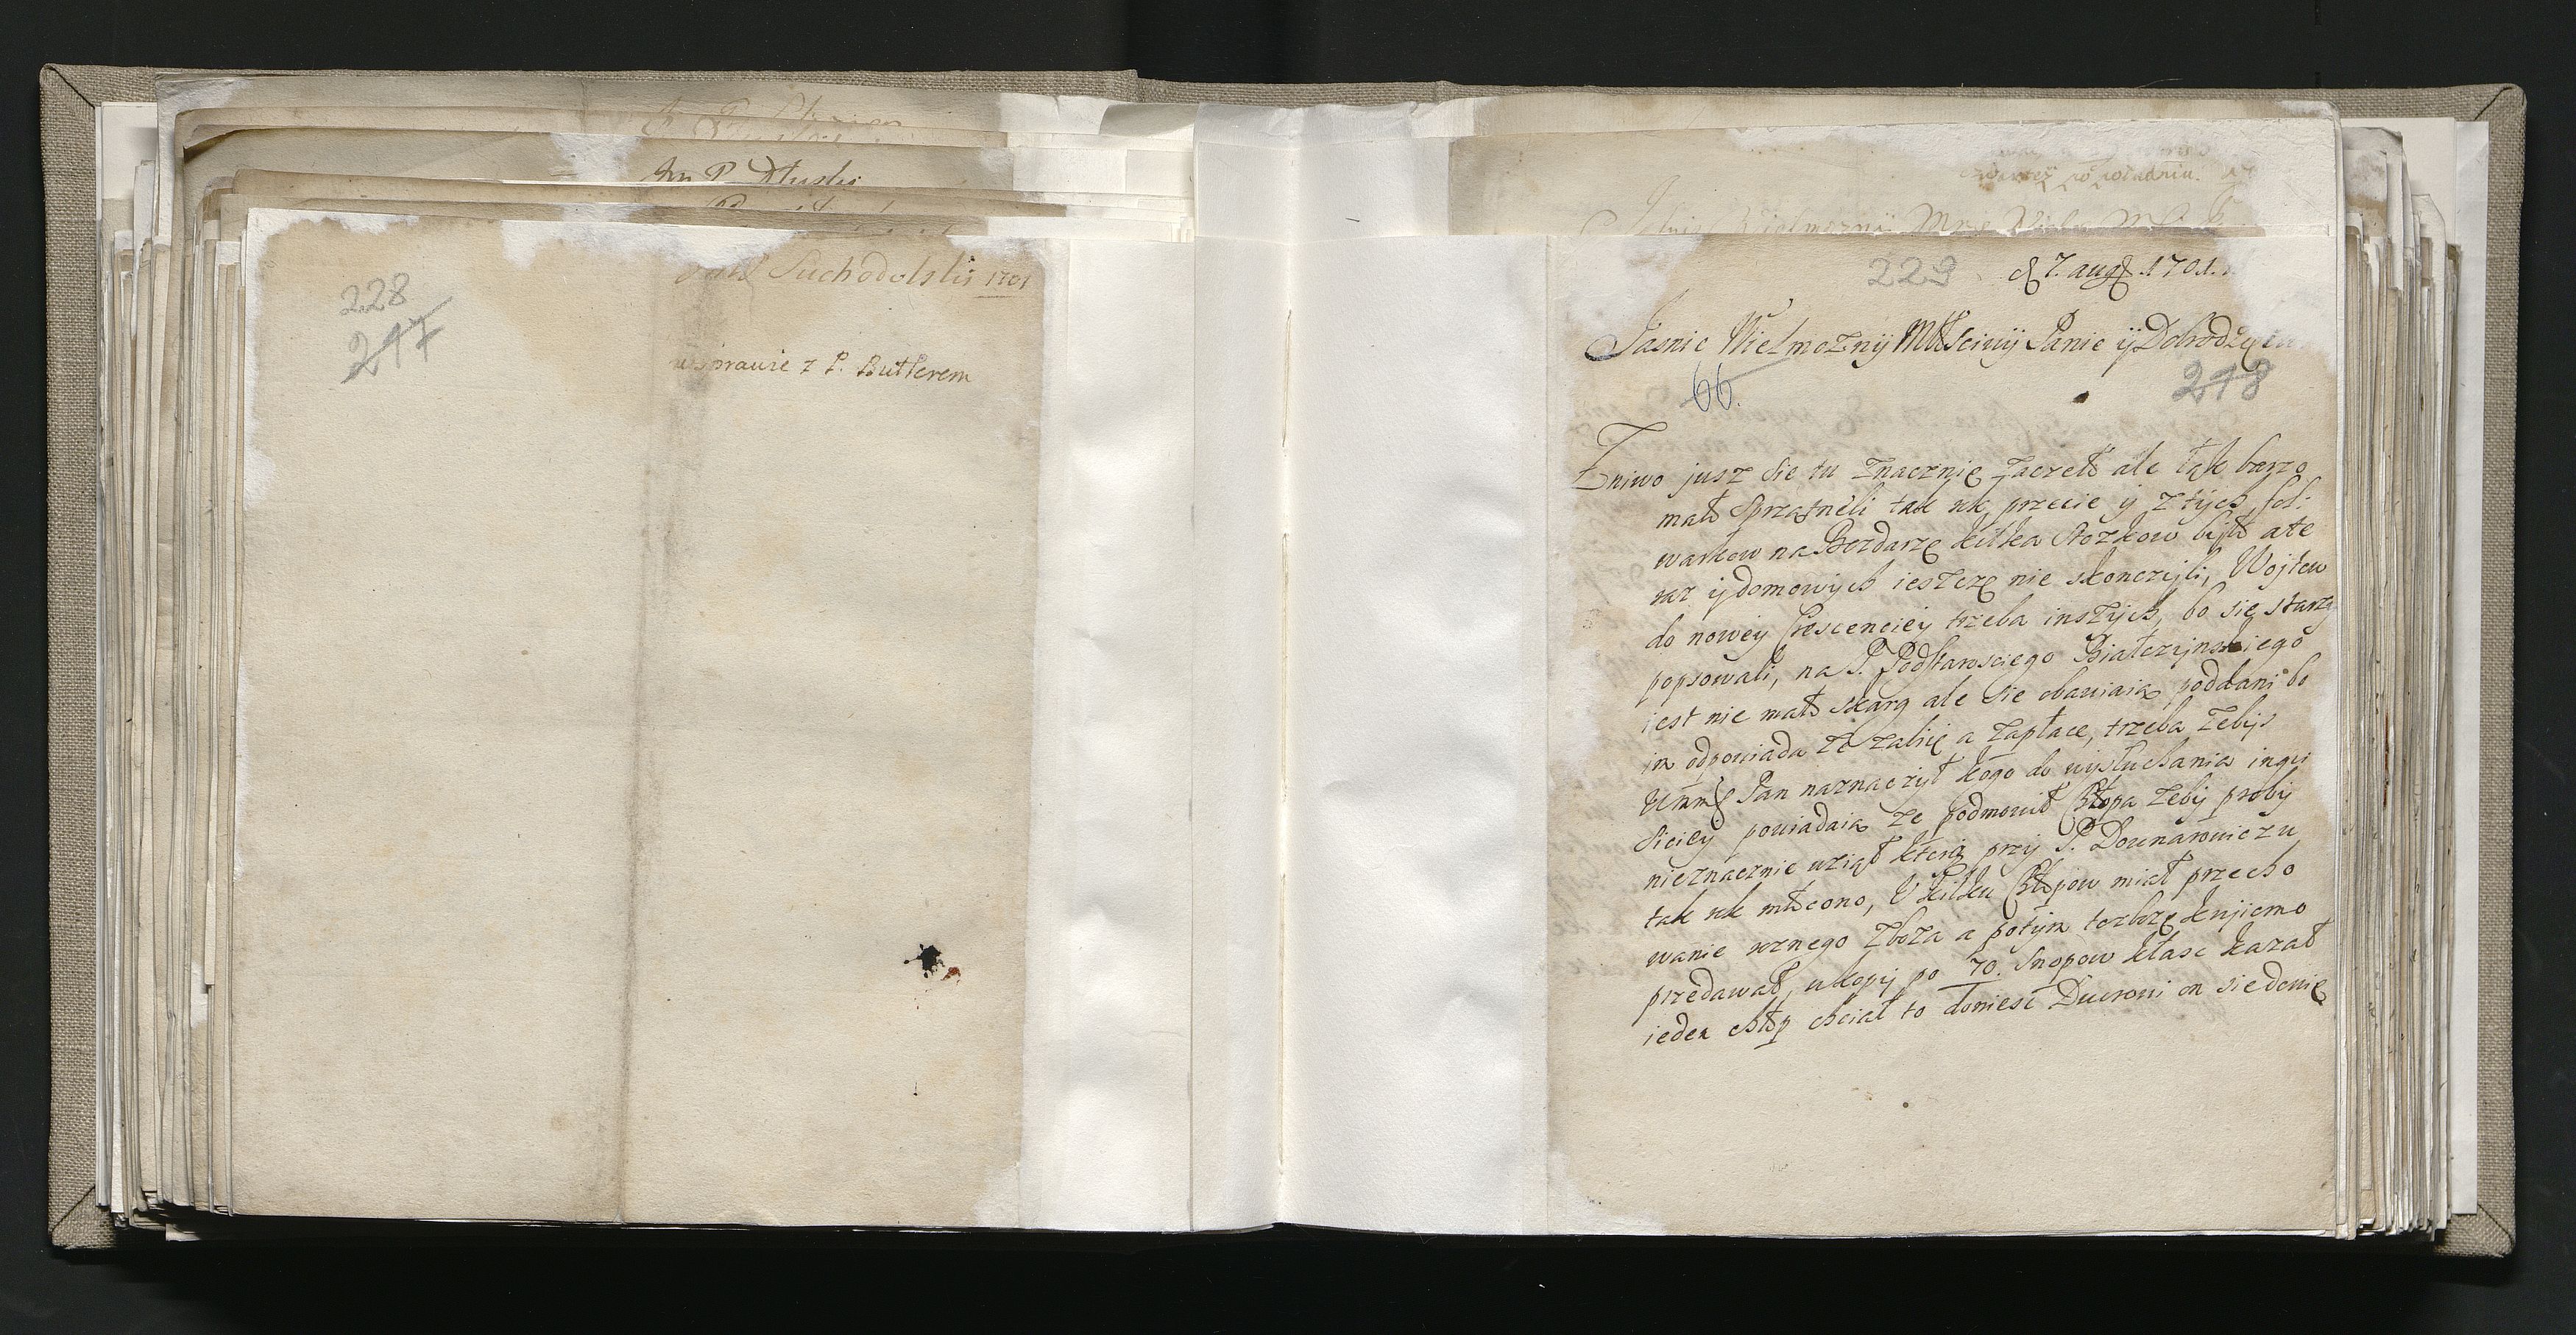 Jm P Dłuski
228
217
Suchodolski 1701
w sprawie z P. Butlerem
czwartey po południu.
229
d 7. aug 1701.
Jasnie Wielmożnÿ Młsciwÿ Panie ÿ Dobrodzieiu
66.
218
Zniwo jusz sie tu znacznie zaczeło ale tak barzo
mało sprzątneli tak rok przecie y z tÿch fol:
warkow na Bezdarze kilka stozkow bÿło ale
ÿ domowÿch ieszcze nie skonczÿli, Woytow
do nowey Crescencieÿ trzeba inszÿch, bo się starzÿ
popsowali, na P. Podstarosciego Białczÿnskiego
iest nie mało skarg ale sie obawiaią poddani bo
im odpowiada ze zabię a zapłace, trzeba zebÿs
Wmm Pan naznaczÿł kogo do wysłuchania inqui
siciey powiadaią ze podmowił Chłopa zebÿ probÿ
nieznacznie wziął ktorą przÿ P. Downarowiczu
tak rok młocono, U kilku Chłopow miał przecho
wanie roznego zboza a potÿm
przedawał, w kopÿ po 70. Snopow kłasc kazał
ieden chłop chciał to doniesc on sie dowie